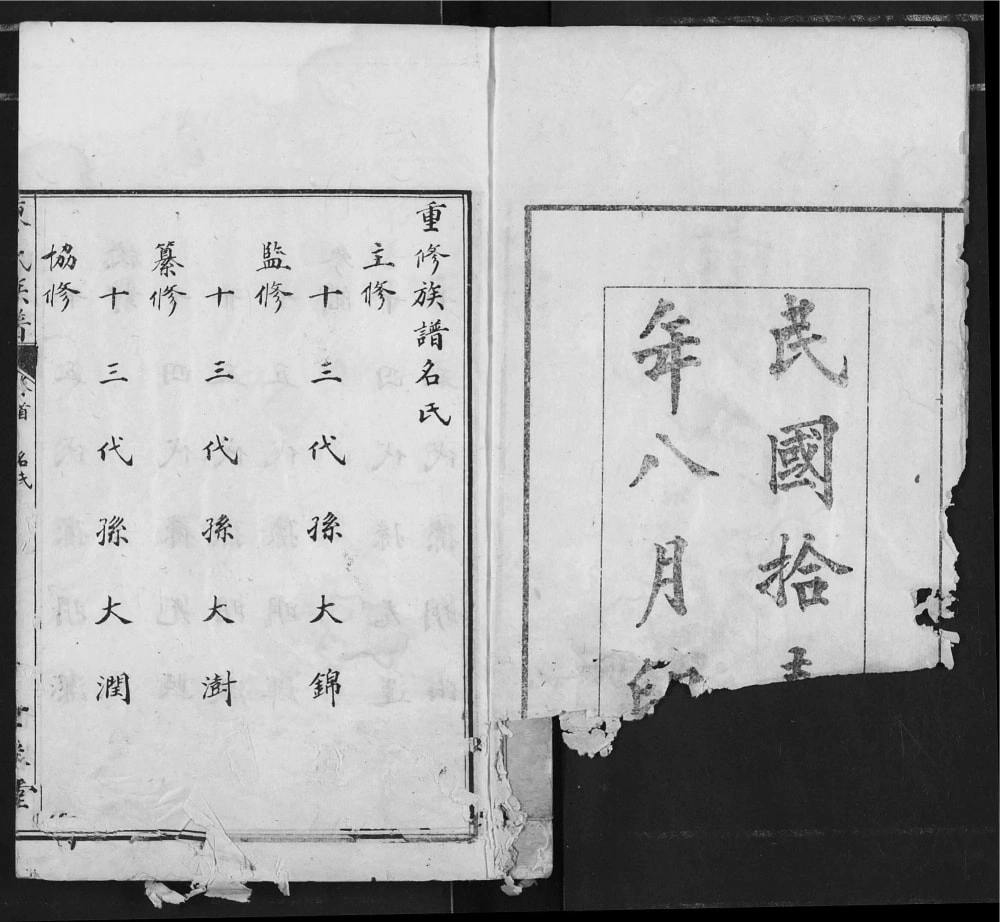 民國拾
年八月印
重修族譜名氏
主修
十三代孫大錦
監修
十三代孫大澍
纂修
十三代孫大潤
協修
氏族譜
卷首
名氏
堂